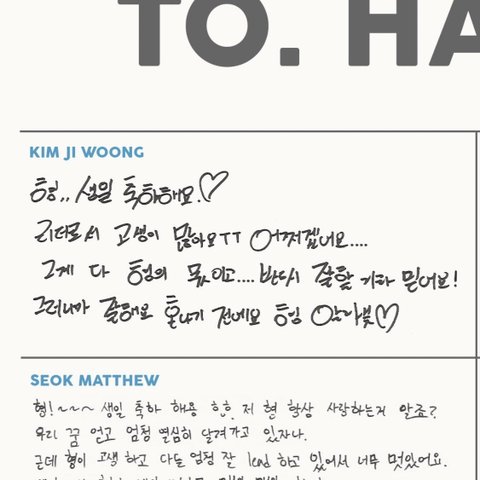 TO. HA
KIM JI WOONG
형,, 생일 축하해요.♡
리더로서 고생이 많아요ㅠㅠ 어쩌겠어요....
그게 다 형의 몫이고.... 반드시 잘할 거라 믿어요!
그러니까 잘해요 혼나기 전에요 형 알라븃♡
SEOK MATTHEW
형!~~~ 생일 축하 해용 항상 사랑하는거 알죠?
우리 꿈 얻고 엄청 열심히 달려가고 있자나.
근데 형이 고생 하고 다들 엄청 잘 lead 하고 있어서 너무 멋있어요.